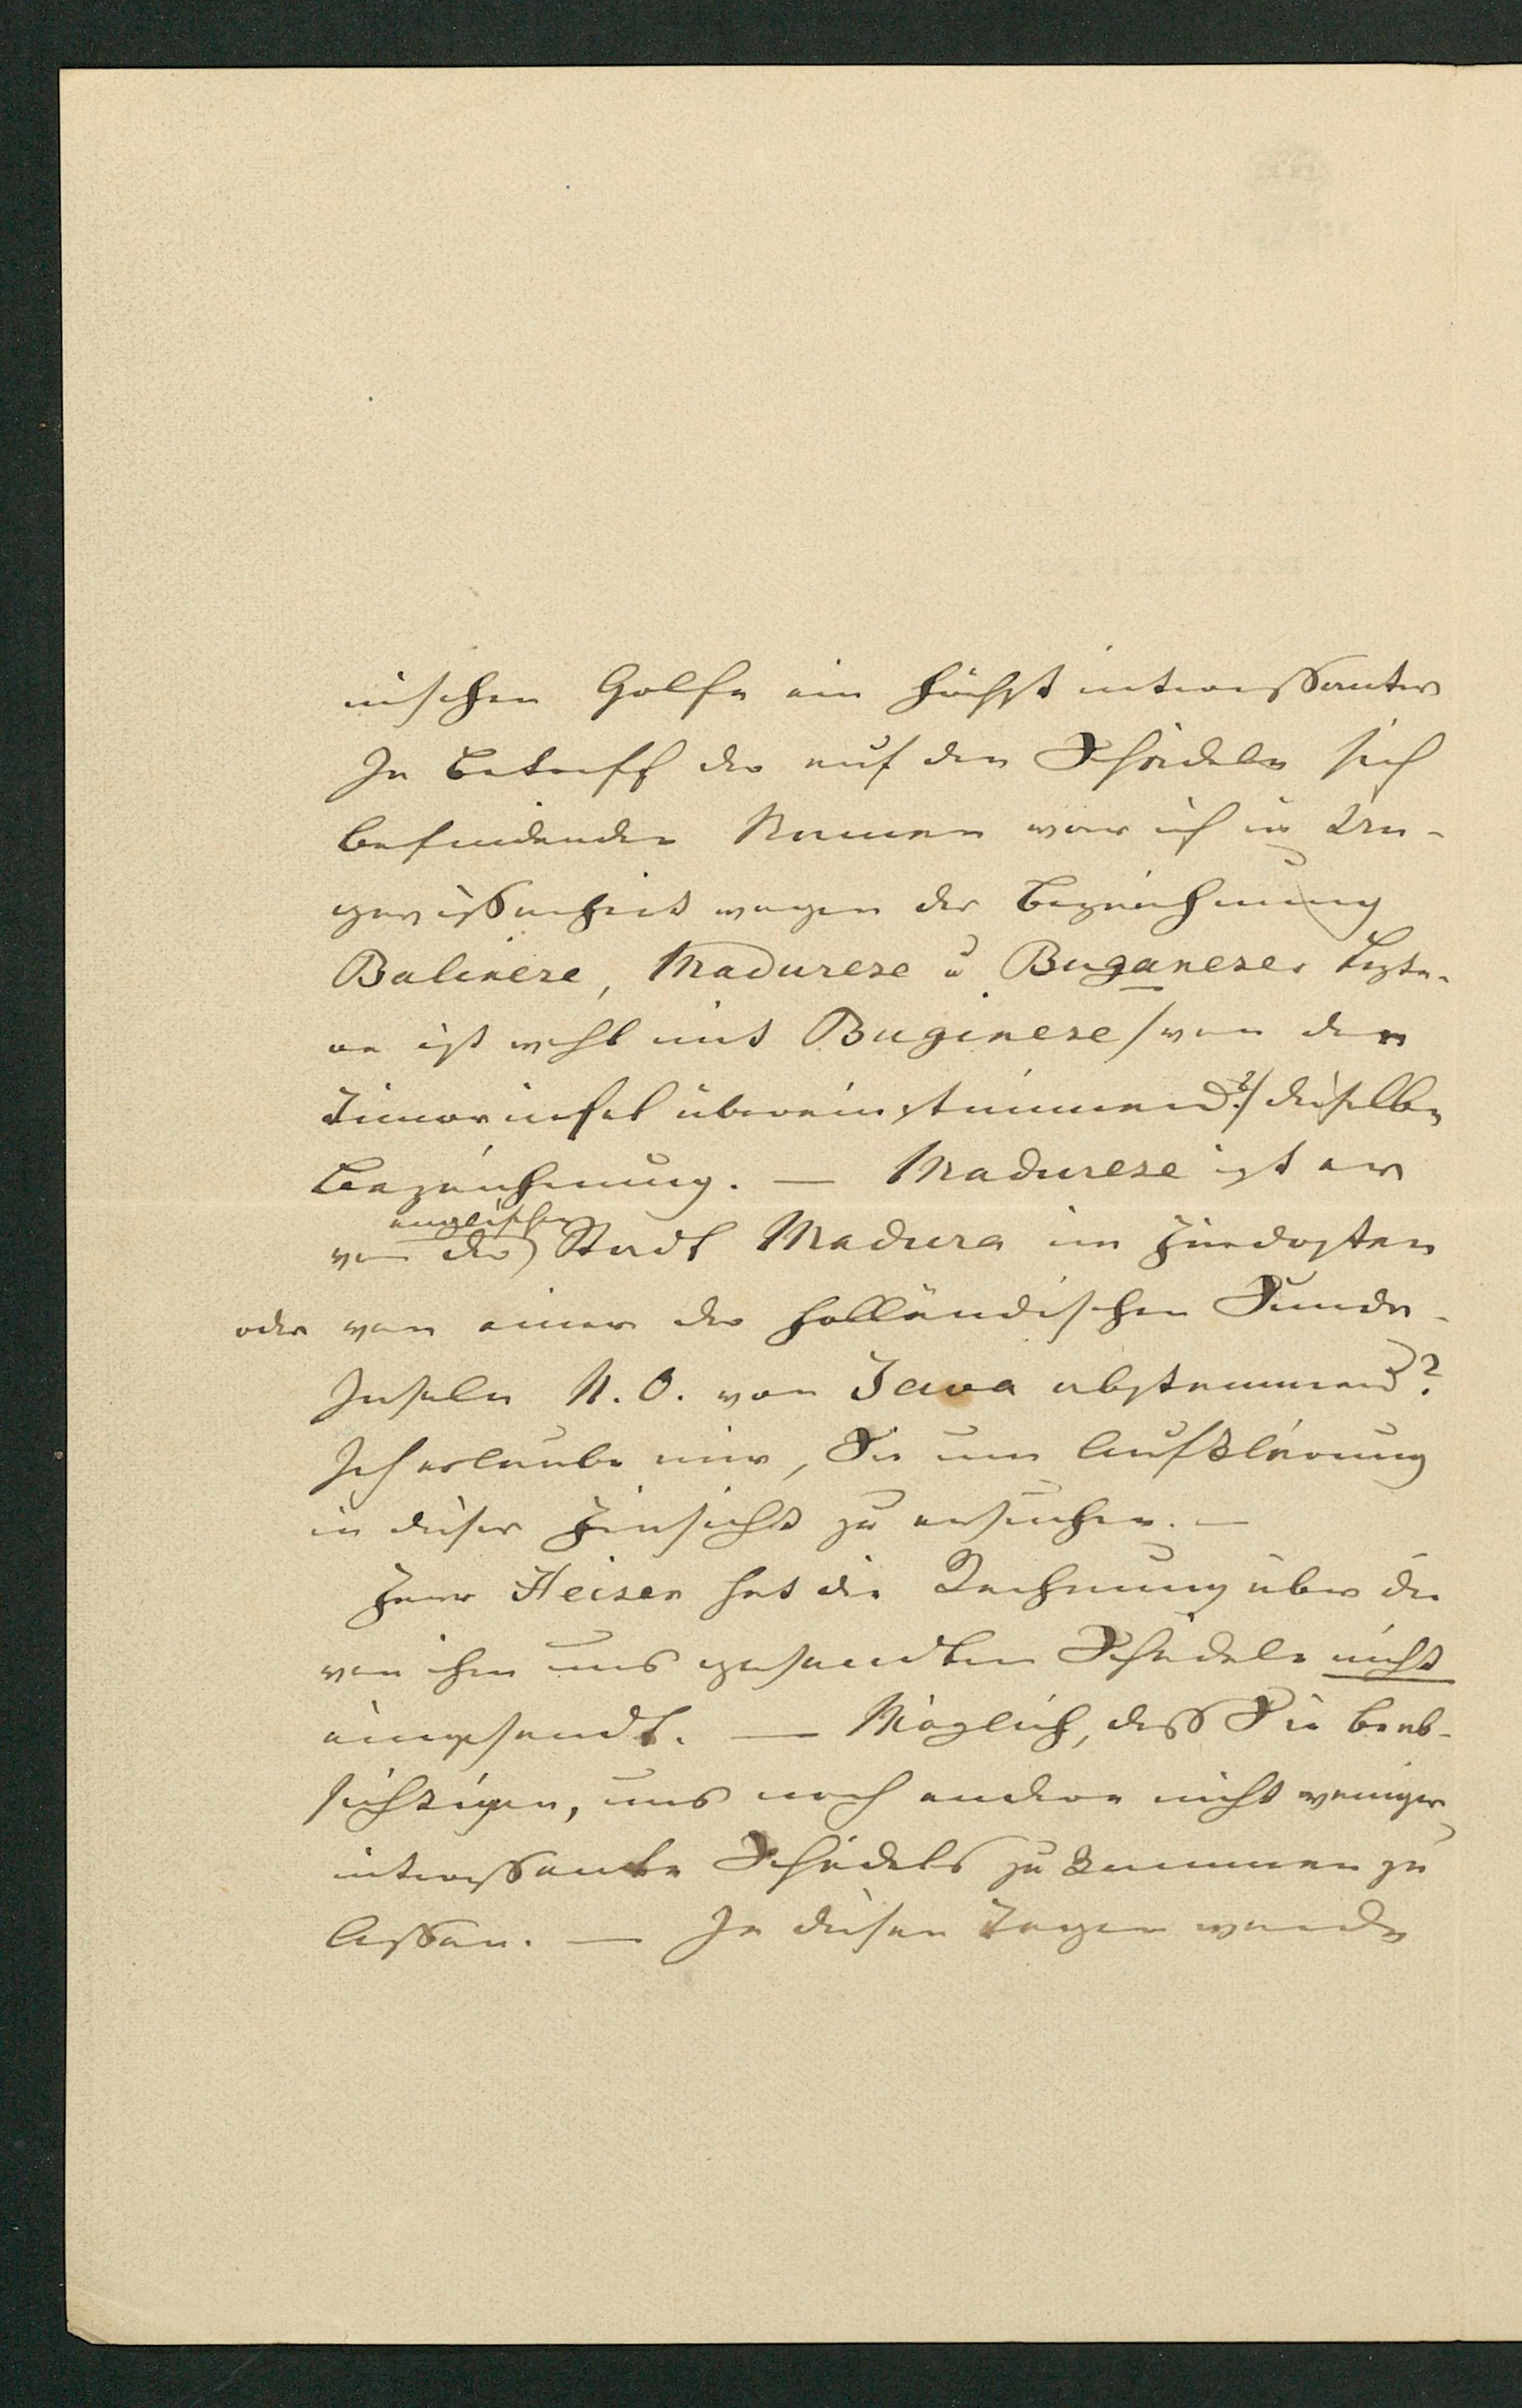 nischen Golfe ein höchst interessanter
In Betreff der auf den Schädeln sich
befindenden Namen war ich in Un-
gewissenheit wegen der Bezeichnung
Balinese, Madurese u Buganese, Lezte-
re ist wohl mit Buginese /von der
Timorinsel übereinstimmend?/ dieselbe
Bezeichnung. — Madurese ist er
von der englischen Stadt Madura im Hindosten
oder von einer der holländischen Sunda-
Inseln N. O. von Java abstammend?
Ich erlaube mir, Sie um Aufklärung
in dieser Hinsicht zu ersuchen. —
Herr Heiser hat die Rechnung über die
von ihm uns gesandten Schädele nicht
eingesandt. — Möglich, dass Sie beab-
sichtigen, uns noch andere nicht weniger
interessante Schädels zu kommen zu
lassen. — In diesen Tagen werde